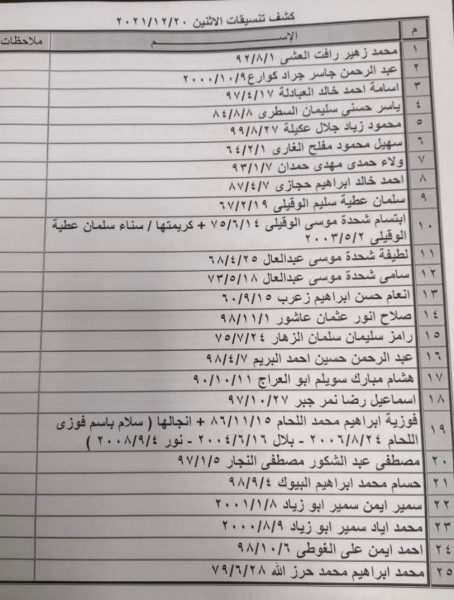 كشف تنسيقات الاثنين ٢٠٢١/١٢/٢٠
م الإســـم ملاحظات
١ محمد زهير رافت العشى ٩٢/٨/١
٢ عبد الرحمن جاسر جراد كوارع ٢٠٠٠/١٠/٩
٣ اسامة احمد خالد العبادلة ٩٧/٤/١٧
٤ ياسر حسنى سليمان السطرى ٨٤/٨/٨
٥ محمود زياد جلال عكيلة ٩٩/٨/٢٧
٦ سهيل محمود مفلح الغارى ٦٤/٢/١
٧ ولاء حمدى مهدى حمدان ٩٣/١/٧
٨ احمد خالد ابراهيم حجازى ٨٧/٤/٧
٩ سلمان عطية سليم الوقيلى ٦٧/٢/١٩
١٠ ابتسام شحدة موسى الوقيلى ٧٥/٦/١٤ + كريمتها / سناء سلمان عطية
الوقيلى ٢٠٠٣/٥/٢
١١ لطيفة شحدة موسى عبدالعال ٦٨/٤/٢٥
١٢ سامى شحدة موسى عبدالعال ٧٣/٥/١٨
١٣ انعام حسن ابراهيم زعرب ٦٠/٩/١٥
١٤ صلاح انور عثمان عاشور ٩٨/١١/١
١٥ رامز سليمان سلمان الزهار ٧٥/٧/٢٤
١٦ عبد الرحمن حسين احمد البريم ٩٨/٤/٧
١٧ هشام مبارك سويلم ابو العراج ٩٠/١٠/١١
١٨ اسماعيل رضا نمر جبر ٩٧/١٠/٢٧
١٩ فوزية ابراهيم محمد اللحام ٨٦/١١/١٥ + انجالها ( سلام باسم فوزى
اللحام ٢٠٠٦/٨/٢٤ - بلال ٢٠٠٤/٦/١٦ - نور ٢٠٠٨/٩/٤ )
٢٠ مصطفى عبد الشكور مصطفى النجار ٩٧/١/٥
٢١ حسام محمد ابراهيم البيوك ٩٨/٩/٤
٢٢ سمير ايمن سمير ابو زياد ٢٠٠١/١/٨
٢٣ محمد اياد سمير ابو زياد ٢٠٠٠/٨/٩
٢٤ احمد ايمن على الغوطى ٩٨/١٠/٦
٢٥ محمد ابراهيم محمد حرز الله ٧٩/٦/٢٨